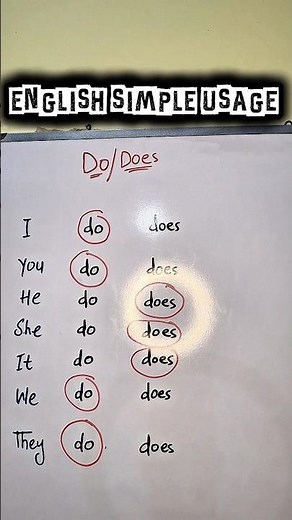 ENGLISH SIMPLE USAGE
Do/Does
I do does
You do does
He do does
She do does
It do does
We do does
They do does